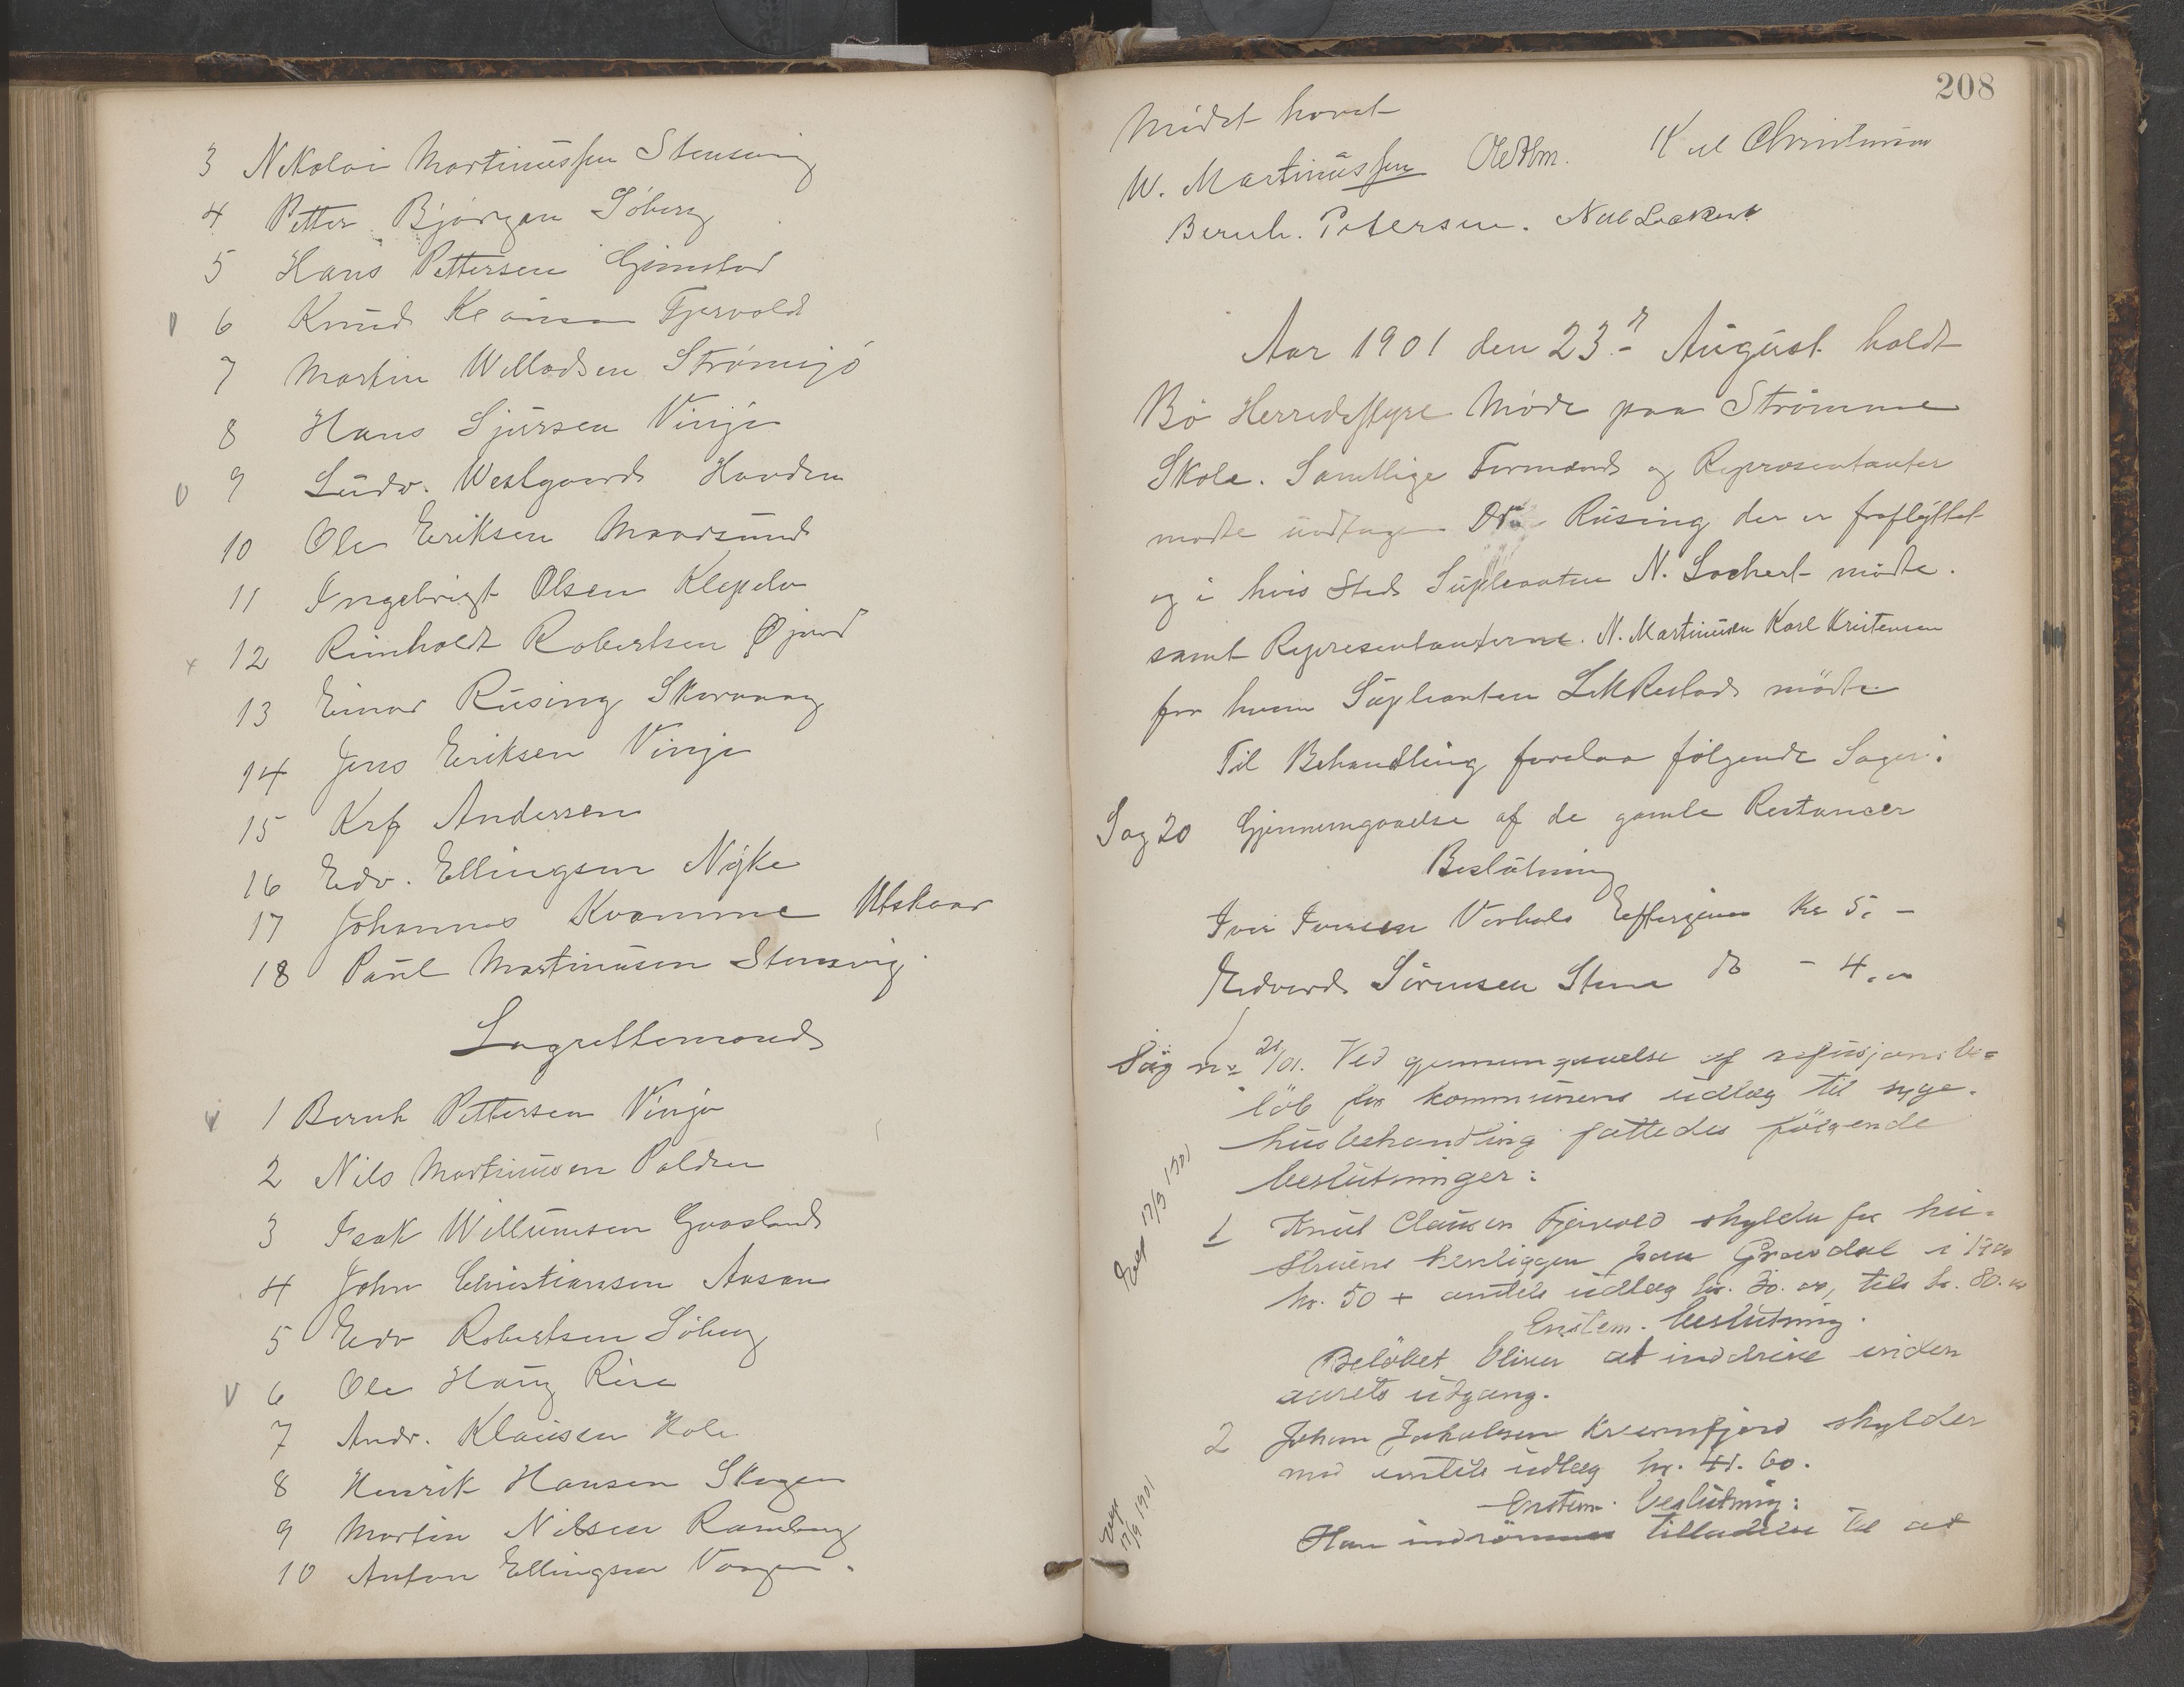 3 Nikolai Martinussen Stensvig
4 Petter Bjørgan Söberg
5 Hans Pettersen Gimstad
6 Knud Klausen Fjervold
7 Martin Willadsen Strømsjö
8 Hans Sjursen Vinje
9 Ludv. Westgaard Hovden
10 Ole Eriksen Maarsund
11 Ingebrigt Olsen Klepelv
x 12 Reinholdt Robertsen Øjord
13 Einar Rüsing Skarvaag
14 Jens Eriksen Vinje
15 Andersen
16 Edv. Ellingsen Nÿke
17 Johannes Kvamme Utskaar
18 Paul Martinusen Stensvig
Lagrettemænd
v 1 Bernh Pettersen Vinje
2 Nils Martinusen Polden
3 Isak Willumsen Gaasland
4 John Christiansen Aasan
5 Edv Robertsen Söberg
v 6 Ole Haug Rise
7 Andr. Klausen Hole
8 Henrik Hansen Skagen
9 Martin Nilsen Ramberg
10 Anton Ellingsen Vaagen.
208
Mödet hævet
W. Martinussen Karl Christensen
Bernh. Petersen.
Aar 1901 den 23 August holdt
Bö Herredsstyre Möde paa Strömme
Skole. Samtlige Formænd og Repræsentanter
mødte undtagen Rüsing der er fraflÿttet
og i hvis Sted Supleanten N. Lochert mödte.
samt Representanterne. N. Martinusen Karl Kristensen
for hvem Supleanten mödte
Til Behandling forelaa fölgende Sager:
Sag 20 Gjennemgaaelse af de gamle Restancer
Beslutning
Iver Iversen Vorhals Eftergives Kr 5. -
Edvard Sörensen Stene do - 4.00
Sag no 21/01. Ved gjennemgaaelse af refusjonsbe=
löb for kommunens udlæg til syge-
husbehandling fattedes fölgende
beslutninger:
Exp 17/9 1901
1 Knut Clausen Fjærvold skylder for hu=
struens henliggen paa Gravdal i 1900
kr. 50 + amtets udlæg kr. 30.00, tils kr. 80.00
Enstem. beslutning.
Belöbet bliver at inddrive inden
aarets udgang.
2 Johan Jakobsen Kvernfjord skylder
med amtets udlæg kr. 41.60.
Enstem. beslutning:
Exp 17/9 1901
Han indrömmes tilladelse til at